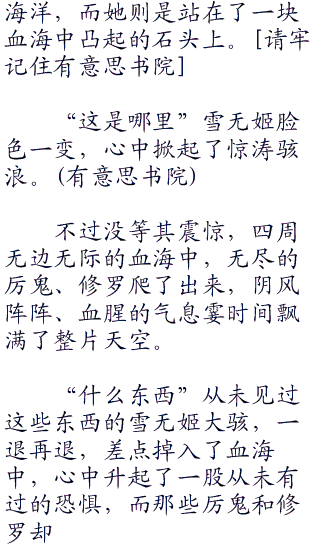 海洋，而她则是站在了一块
血海中凸起的石头上。[请牢
记住有意思书院]
“这是哪里”雪无姬脸
色一变，心中掀起了惊涛骇
浪。(有意思书院)
不过没等其震惊，四周
无边无际的血海中，无尽的
厉鬼、修罗爬了出来，阴风
阵阵、血腥的气息霎时间飘
满了整片天空。
“什么东西”从未见过
这些东西的雪无姬大骇，一
退再退，差点掉入了血海
中，心中升起了一股从未有
过的恐惧，而那些厉鬼和修
罗却